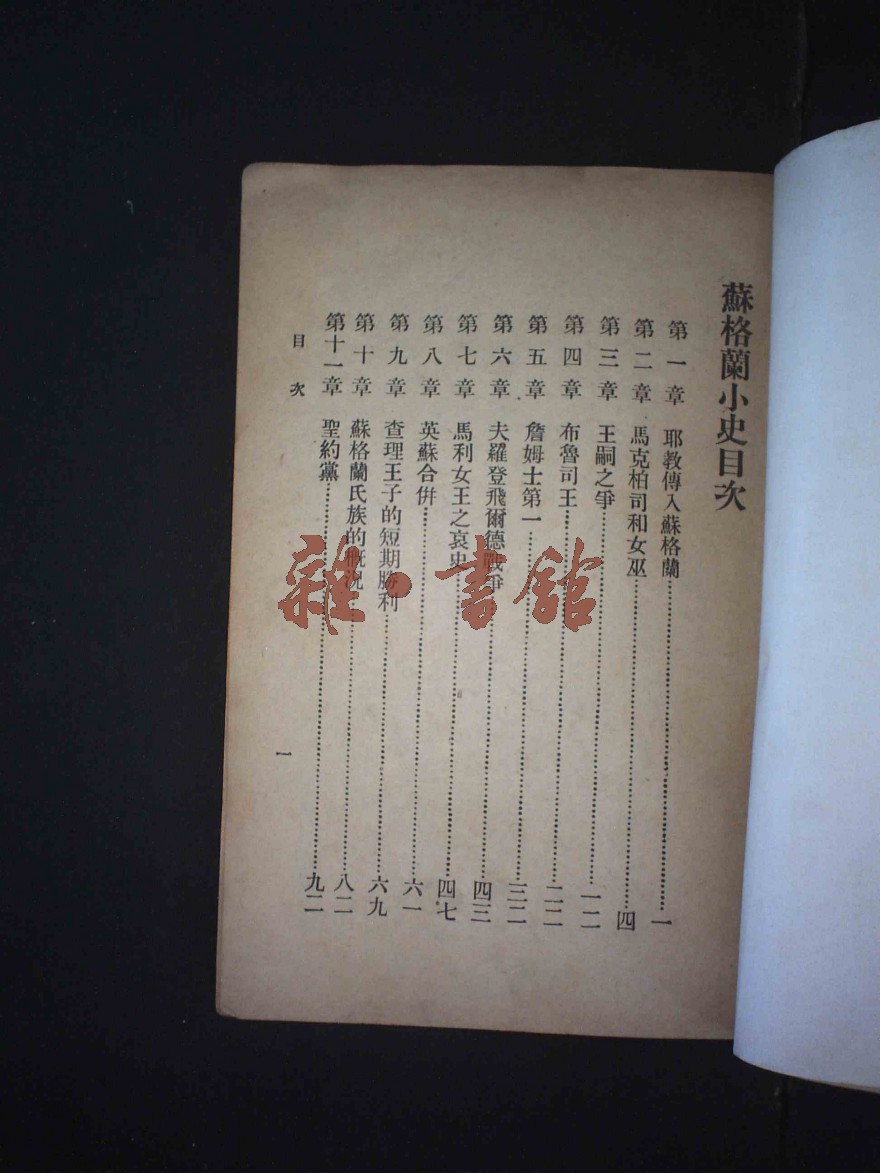 蘇格蘭小史目次
第一章 耶教傳入蘇格蘭…………一
第二章 馬克柏司和女巫…………四
第三章 王嗣之爭…………一二
第四章 布魯司王…………二二
第五章 詹姆士第一…………三二
第六章 夫羅登飛爾德戰爭…………四三
第七章 馬利女王之哀史…………四七
第八章 英蘇合併…………六一
第九章 查理王子的短期勝利…………六九
第十章 蘇格蘭氏族的概況…………八二
第十一章 聖約黨…………九二
目次
一
雜·書館